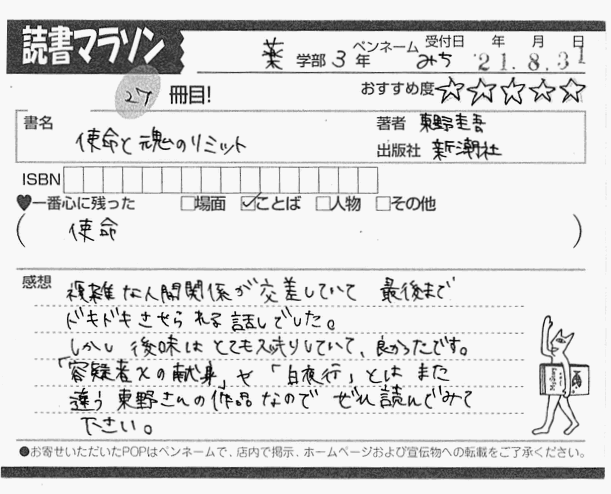 読書マラソン
薬 学部 3 年 ペンネーム みち 受付日 '21.8.31 年 月 日
27 冊目! おすすめ度☆☆☆☆☆
書名 使命と魂のリミット
著者 東野圭吾
出版社 新潮社
ISBN
♥一番心に残った □場面 ☑ことば □人物 □その他
( 使命 )
感想 複雑な人間関係が交差していて 最後まで
ドキドキさせられる話しでした。
しかし 後味はとてもスッキリしていて、良かったです。
「容疑者Xの献身」や「白夜行」とはまた
違う東野さんの作品なので ぜひ読んでみて
下さい。
●お寄せいただいたPOPはペンネームで、店内で掲示、ホームページおよび宣伝物への転載をご了承ください。